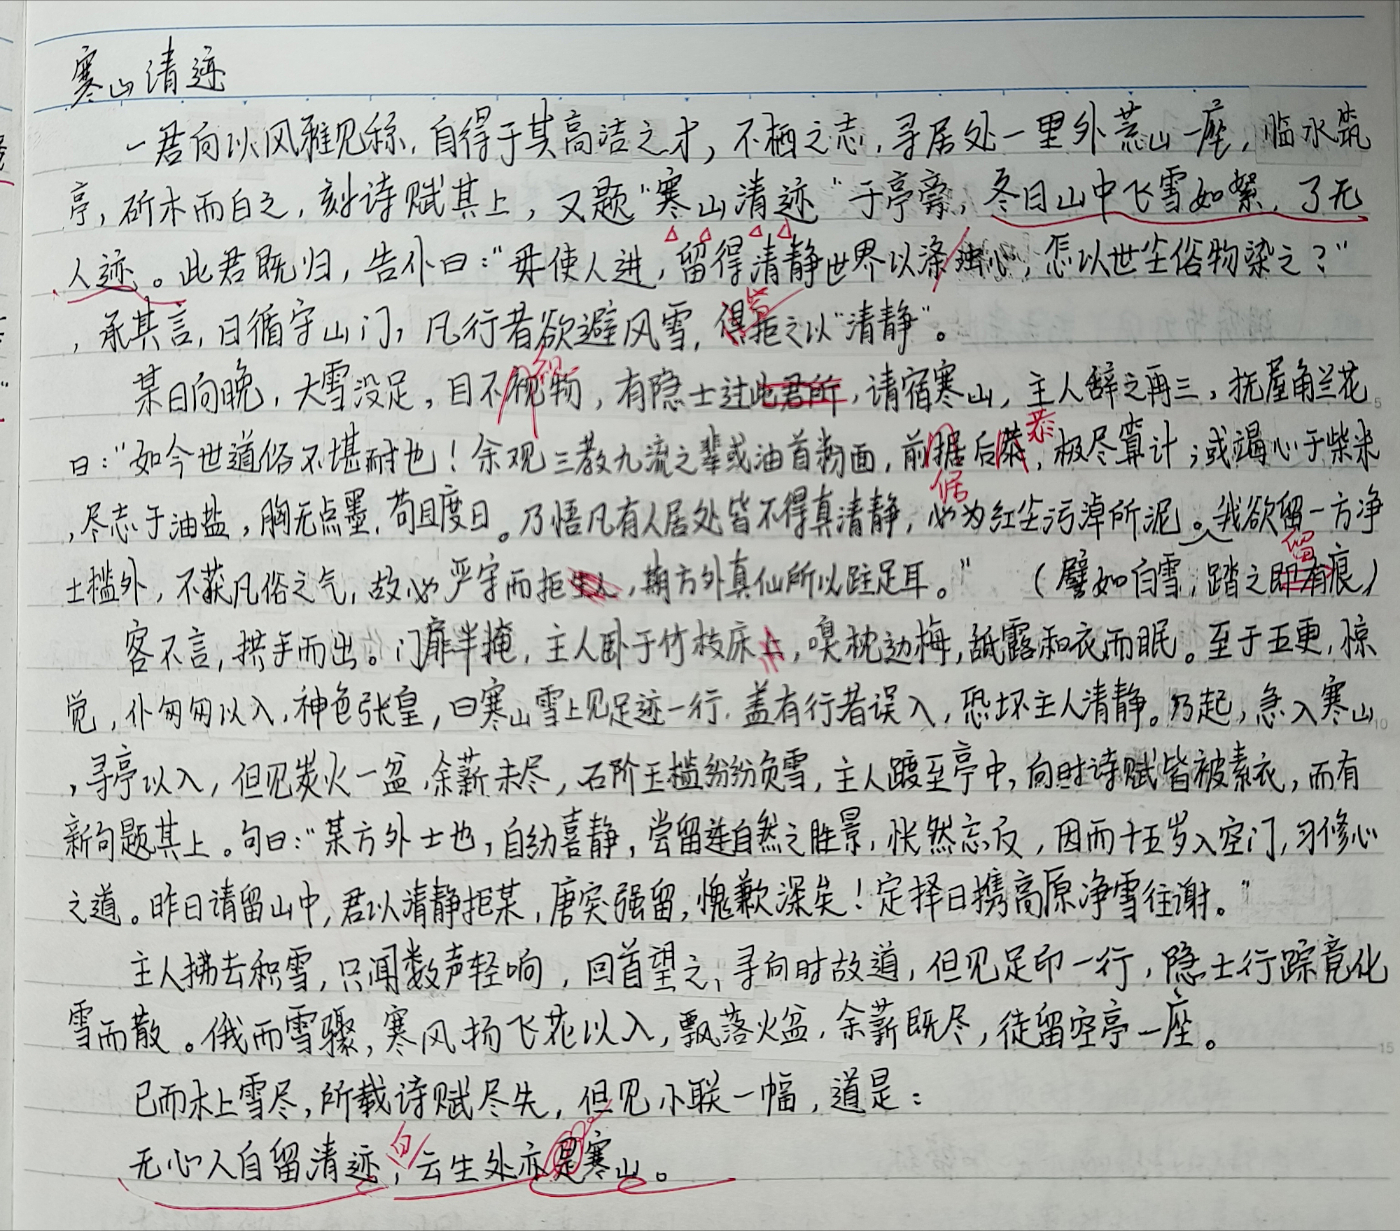 寒山清迹
一君向以风雅见称，自得于其高洁之才，不栖之志，寻居处一里外荒山一座，临水筑
亭，斫木而白之，刻诗赋其上，又题“寒山清迹”于亭旁，冬日山中飞雪如絮，了无
人迹。此君既归，告仆曰：“毋使人进，留得清静世界以涤心，怎以世尘俗物染之？”
，承其言，日循守山门，凡行者欲避风雪，皆拒之以“清静”。
某日向晚，大雪没足，目不视物，有隐士过此君所，请宿寒山，主人辞之再三，抚屋角兰花
曰：“如今世道俗不堪耐也！余观三教九流之辈或油首粉面，前倨后恭，极尽算计；或竭心于柴米
，尽志于油盐，胸无点墨，苟且度日。乃悟凡有人居处皆不得真清静，必为红尘污淖所泥。我欲留一方净
土槛外，不获凡俗之气，故必严守而拒生人，期方外真仙所以驻足耳。”（譬如白雪，踏之即留痕）
客不言，拱手而出。门扉半掩，主人卧于竹枝床上，嗅枕边梅，舐露和衣而眠。至于五更，惊
觉，仆匆匆以入，神色张皇，曰寒山雪上见足迹一行，盖有行者误入，恐坏主人清静。乃起，急入寒山
，寻亭以入，但见炭火一盆，余薪未尽，石阶玉槛纷纷负雪，主人踱至亭中，向时诗赋皆被素衣，而有
新句题其上。句曰：“某方外士也，自幼喜静，尝留连自然之胜景，怅然忘反，因而十五岁入空门，习修心
之道。昨日请留山中，君以清静拒某，唐突强留，愧歉深矣！定择日携高原净雪往谢。”
主人拂去积雪，只闻数声轻响，回首望之，寻向时故道，但见足印一行，隐士行踪竟化
雪而散。俄而雪骤，寒风扬飞花以入，飘落火盆，余薪既尽，徒留空亭一座。
已而木上雪尽，所载诗赋尽失，但见小联一幅，道是：
无心人自留清迹，白云生处亦是寒山。